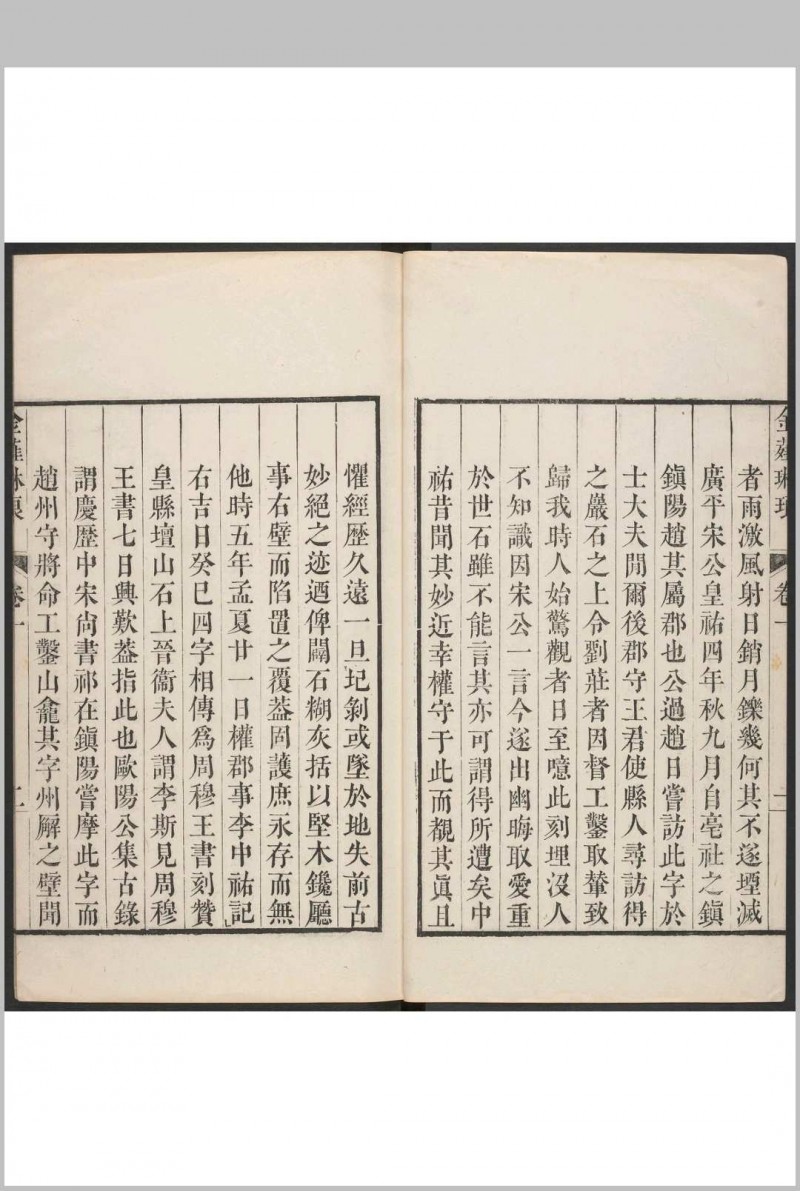 金薤琳琅 卷一 二
者雨激風射日銷月鑠幾何其不遂堙滅
廣平宋公皇祐四年秋九月自亳社之鎮
鎮陽趙其屬郡也公過趙日嘗訪此字於
士大夫閒爾後郡守王君使縣人尋訪得
之巖石之上令劉莊者因督工鑿取輦致
歸我時人始驚觀者日至噫此刻埋沒人
不知識因宋公一言今遂出幽晦取愛重
於世石雖不能言其亦可謂得所遭矣中
祐昔聞其妙近幸權守于此而覩其眞且
懼經歷久遠一旦圮剝或墜於地失前古
妙絕之迹迺俾闢石糊灰括以堅木鑱廳
事右壁而陷置之覆葢固護庶永存而無
他時五年孟夏廿一日權郡事李中祐記
右吉日癸巳四字相傳爲周穆王書刻贊
皇縣壇山石上晉衞夫人謂李斯見周穆
王書七日興歎葢指此也歐陽公集古錄
謂慶歷中宋尙書祁在鎮陽嘗摩此字而
趙州守將命工鑿山龕其字州廨之壁聞
金薤琳琅 卷一 二